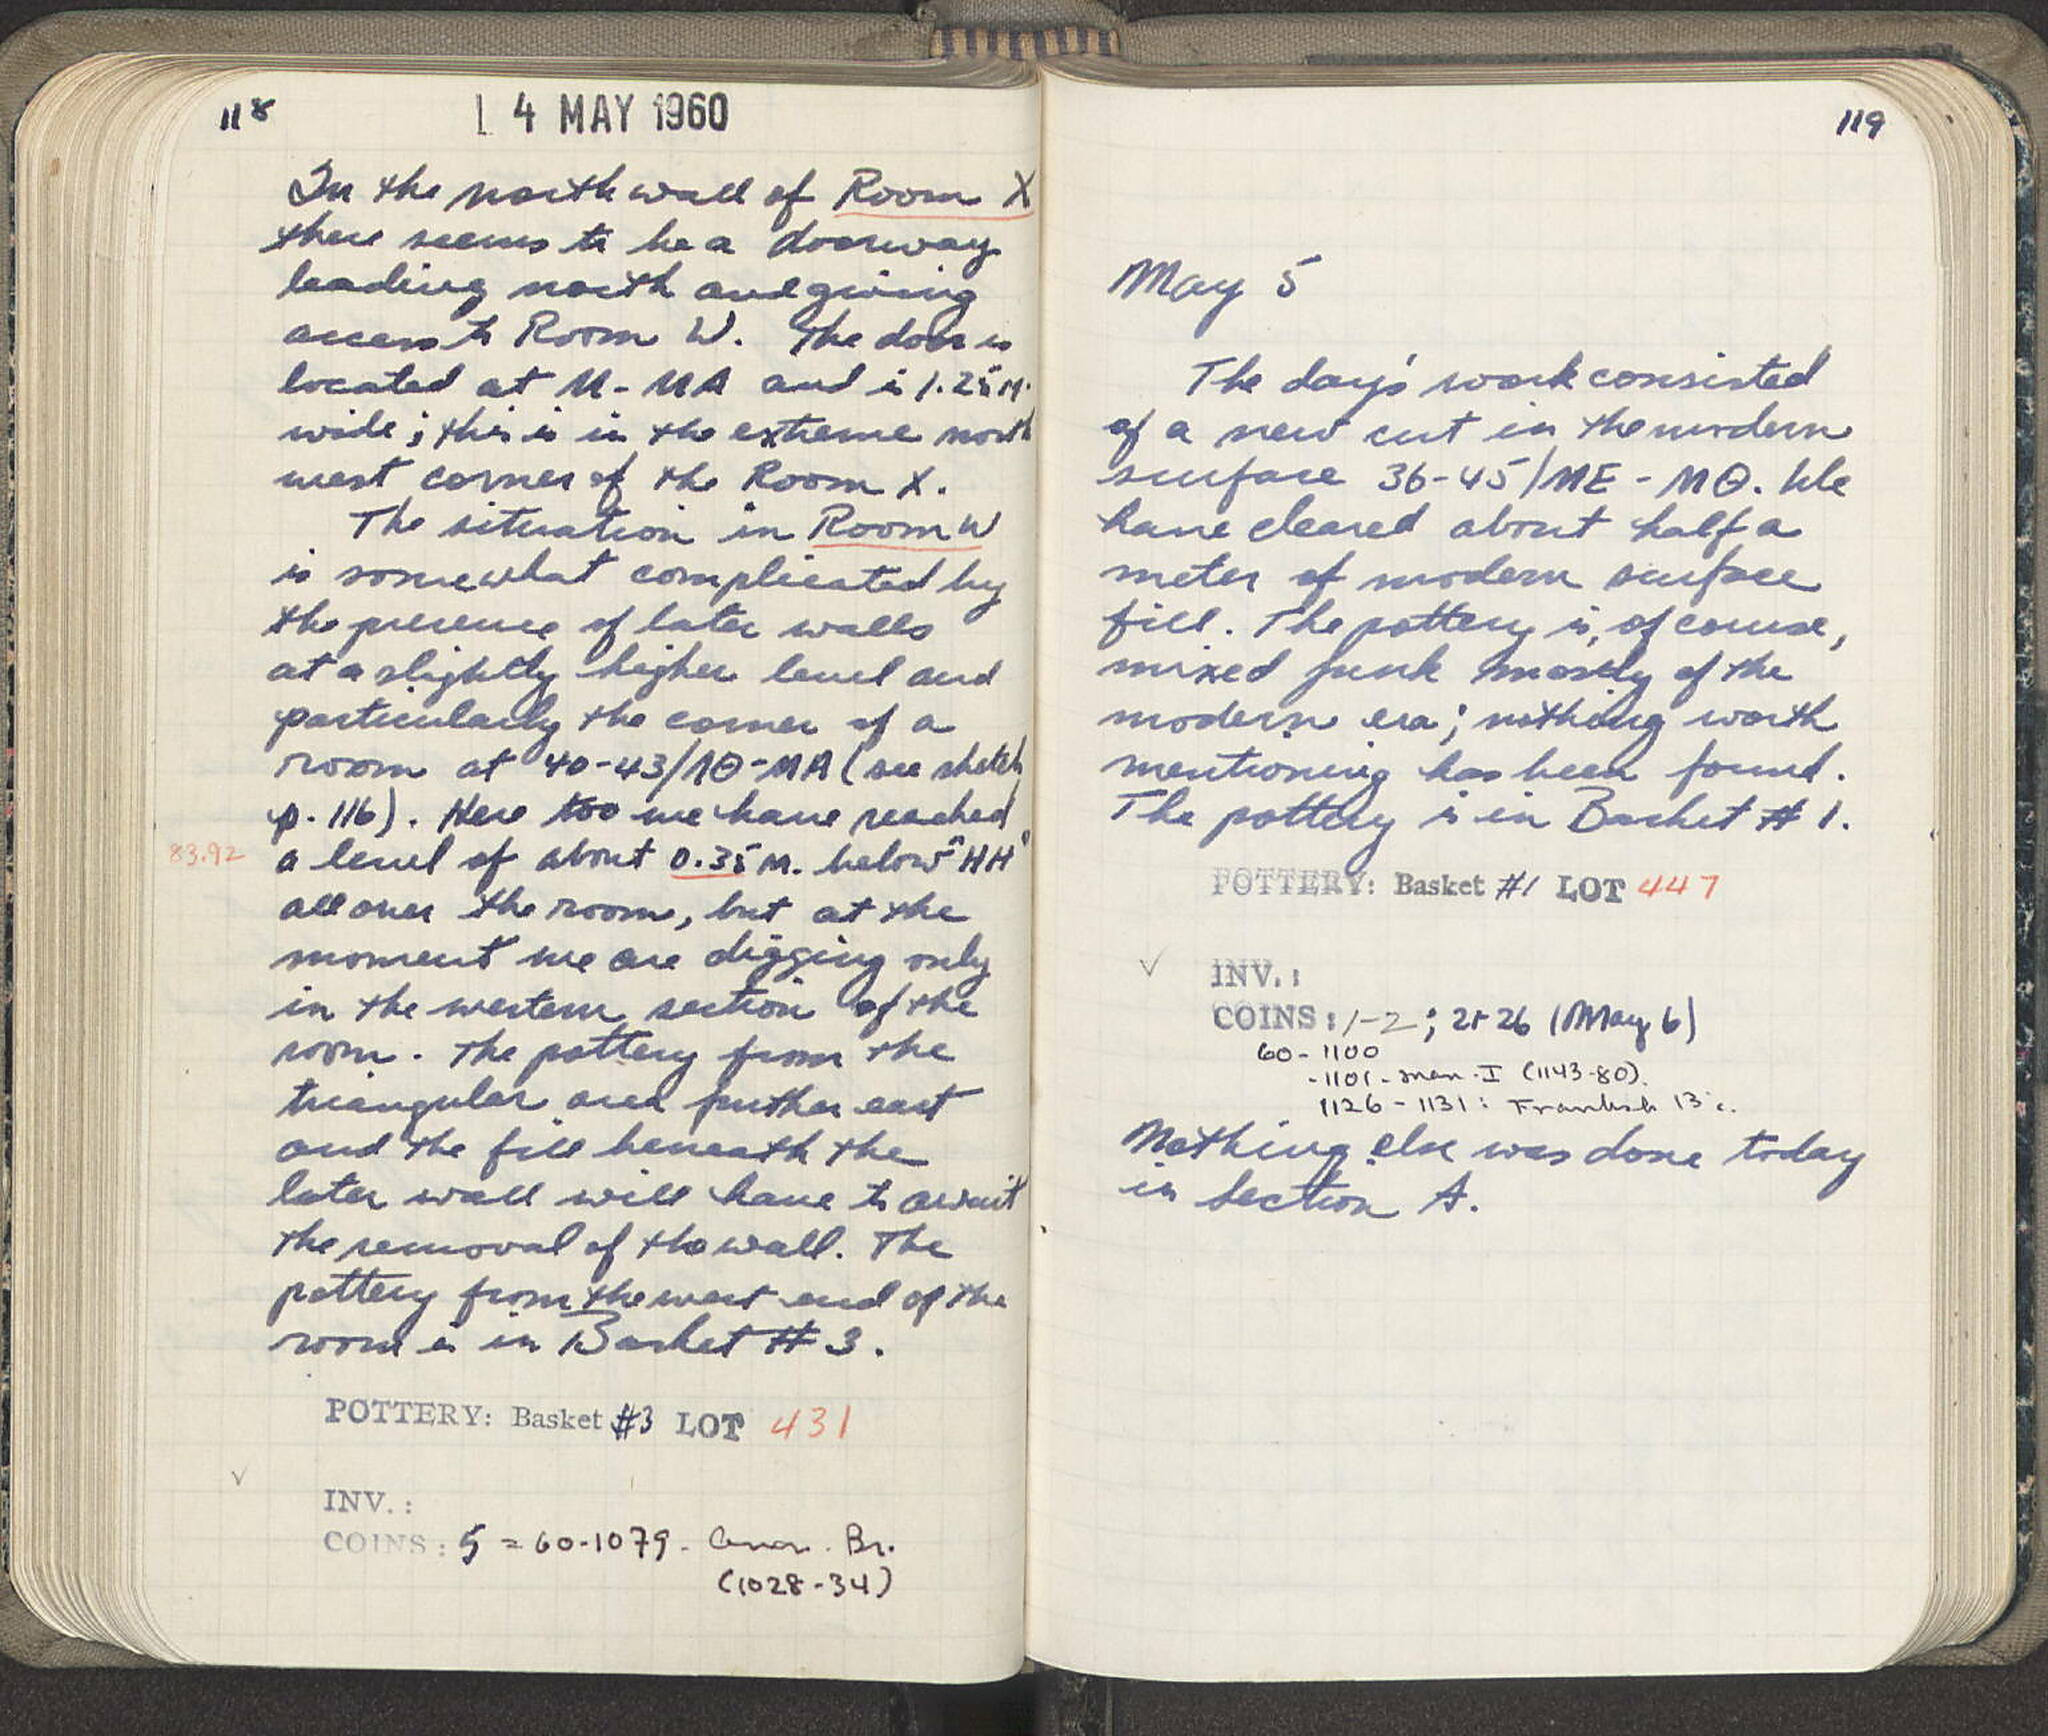 118
4 MAY 1960
In the north wall of Room X
there seems to be a doorway
leading north and giving
access to Room W. The door is
located at M-MA and is 1.25 M.
wide; this is in the extreme north
west corner of the Room X.
The situation in Room W
is somewhat complicated by
the presence of later walls
at a slightly higher level and
particularly the corner of a
room at 40-43/ΛΘ-MA (see sketch
p. 116). Here too we have reached
83.92
a level of about 0.35 M. below "HH"
all over the room, but at the
moment we are digging only
in the western section of the
room. The pottery from the
triangular area further east
and the fill beneath the
later wall will have to await
the removal of the wall. The
pottery from the west end of the
room is in Basket # 3.
POTTERY: Basket #3 LOT 431
✓
INV.:
COINS: 5 = 60-1079 - Anon. Br.
(1028-34)
119
May 5
The day's work consisted
of a new cut in the modern
surface 36-45/ME-MΘ. We
have cleared about half a
meter of modern surface
fill. The pottery is, of course,
mixed junk mostly of the
modern era; nothing worth
mentioning has been found.
The pottery is in Basket # 1.
POTTERY: Basket #1 LOT 447
✓
INV.:
COINS: 1-2; 21-26 (May 6)
60-1100
-1101 - Man. I (1143-80).
1126-1131: Frankish 13 c.
Nothing else was done today
in Section A.